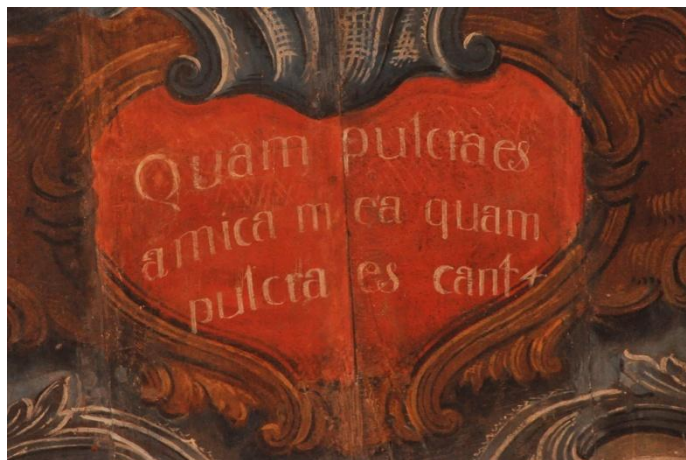 Quam pulcra es
amica mea quam
pulcra es cant 4